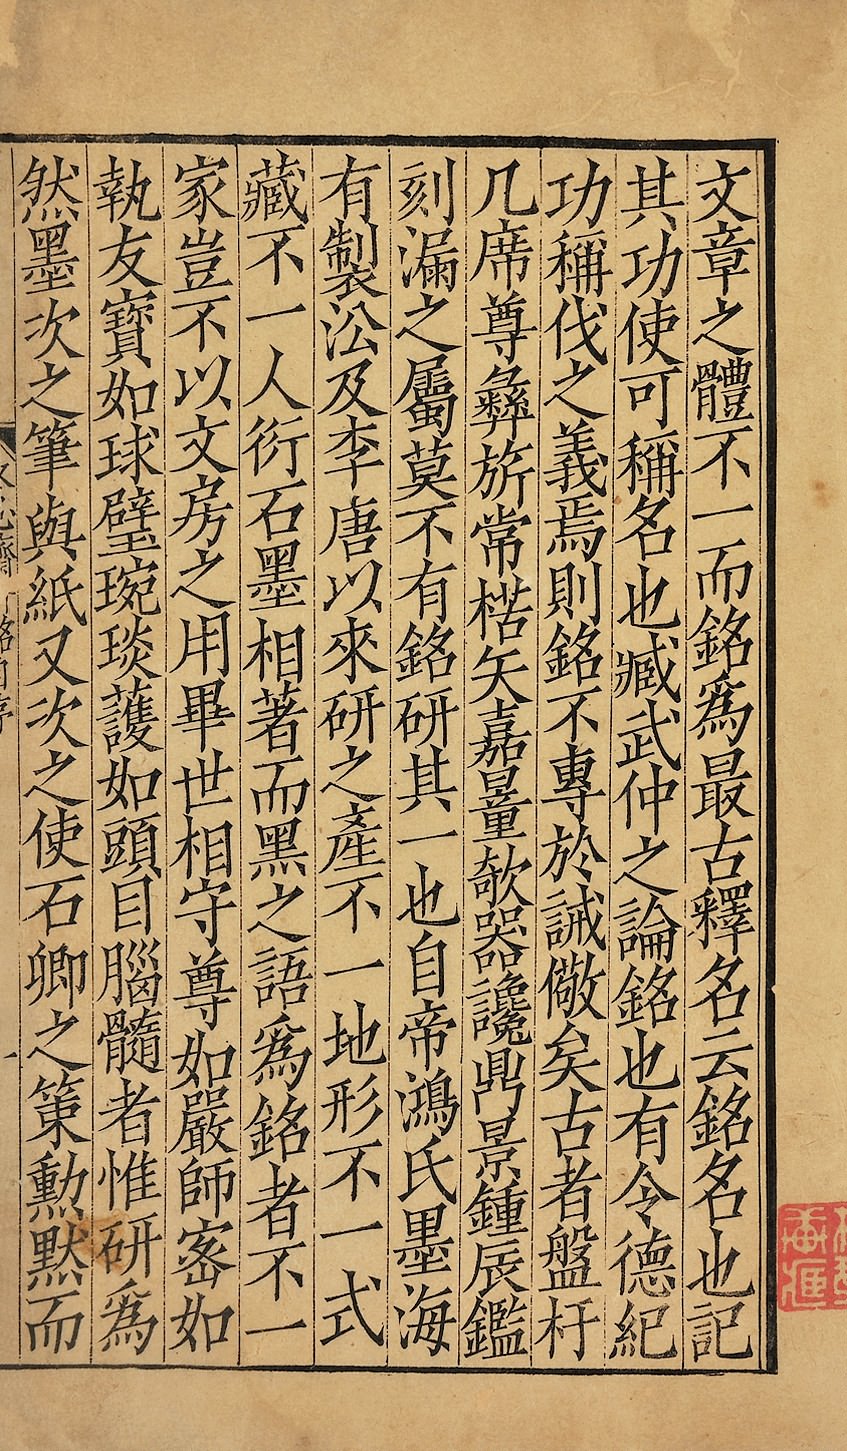 文章之體不一而銘爲最古釋名云銘名也記
其功使可稱名也臧武仲之論銘也有令德紀
功稱伐之義焉則銘不專於誡儆矣古者盤杅
几席尊彝旂常楛矢嘉量欹器讒鼎景鍾辰鑑
刻漏之屬莫不有銘研其一也自帝鴻氏墨海
有製㳂及李唐以來研之產不一地形不一式
藏不一人衍石墨相著而黑之語爲銘者不一
家豈不以文房之用畢世相守尊如嚴師密如
執友寶如球璧琬琰護如頭目腦髓者惟研爲
然墨次之筆與紙又次之使石卿之策勳默而